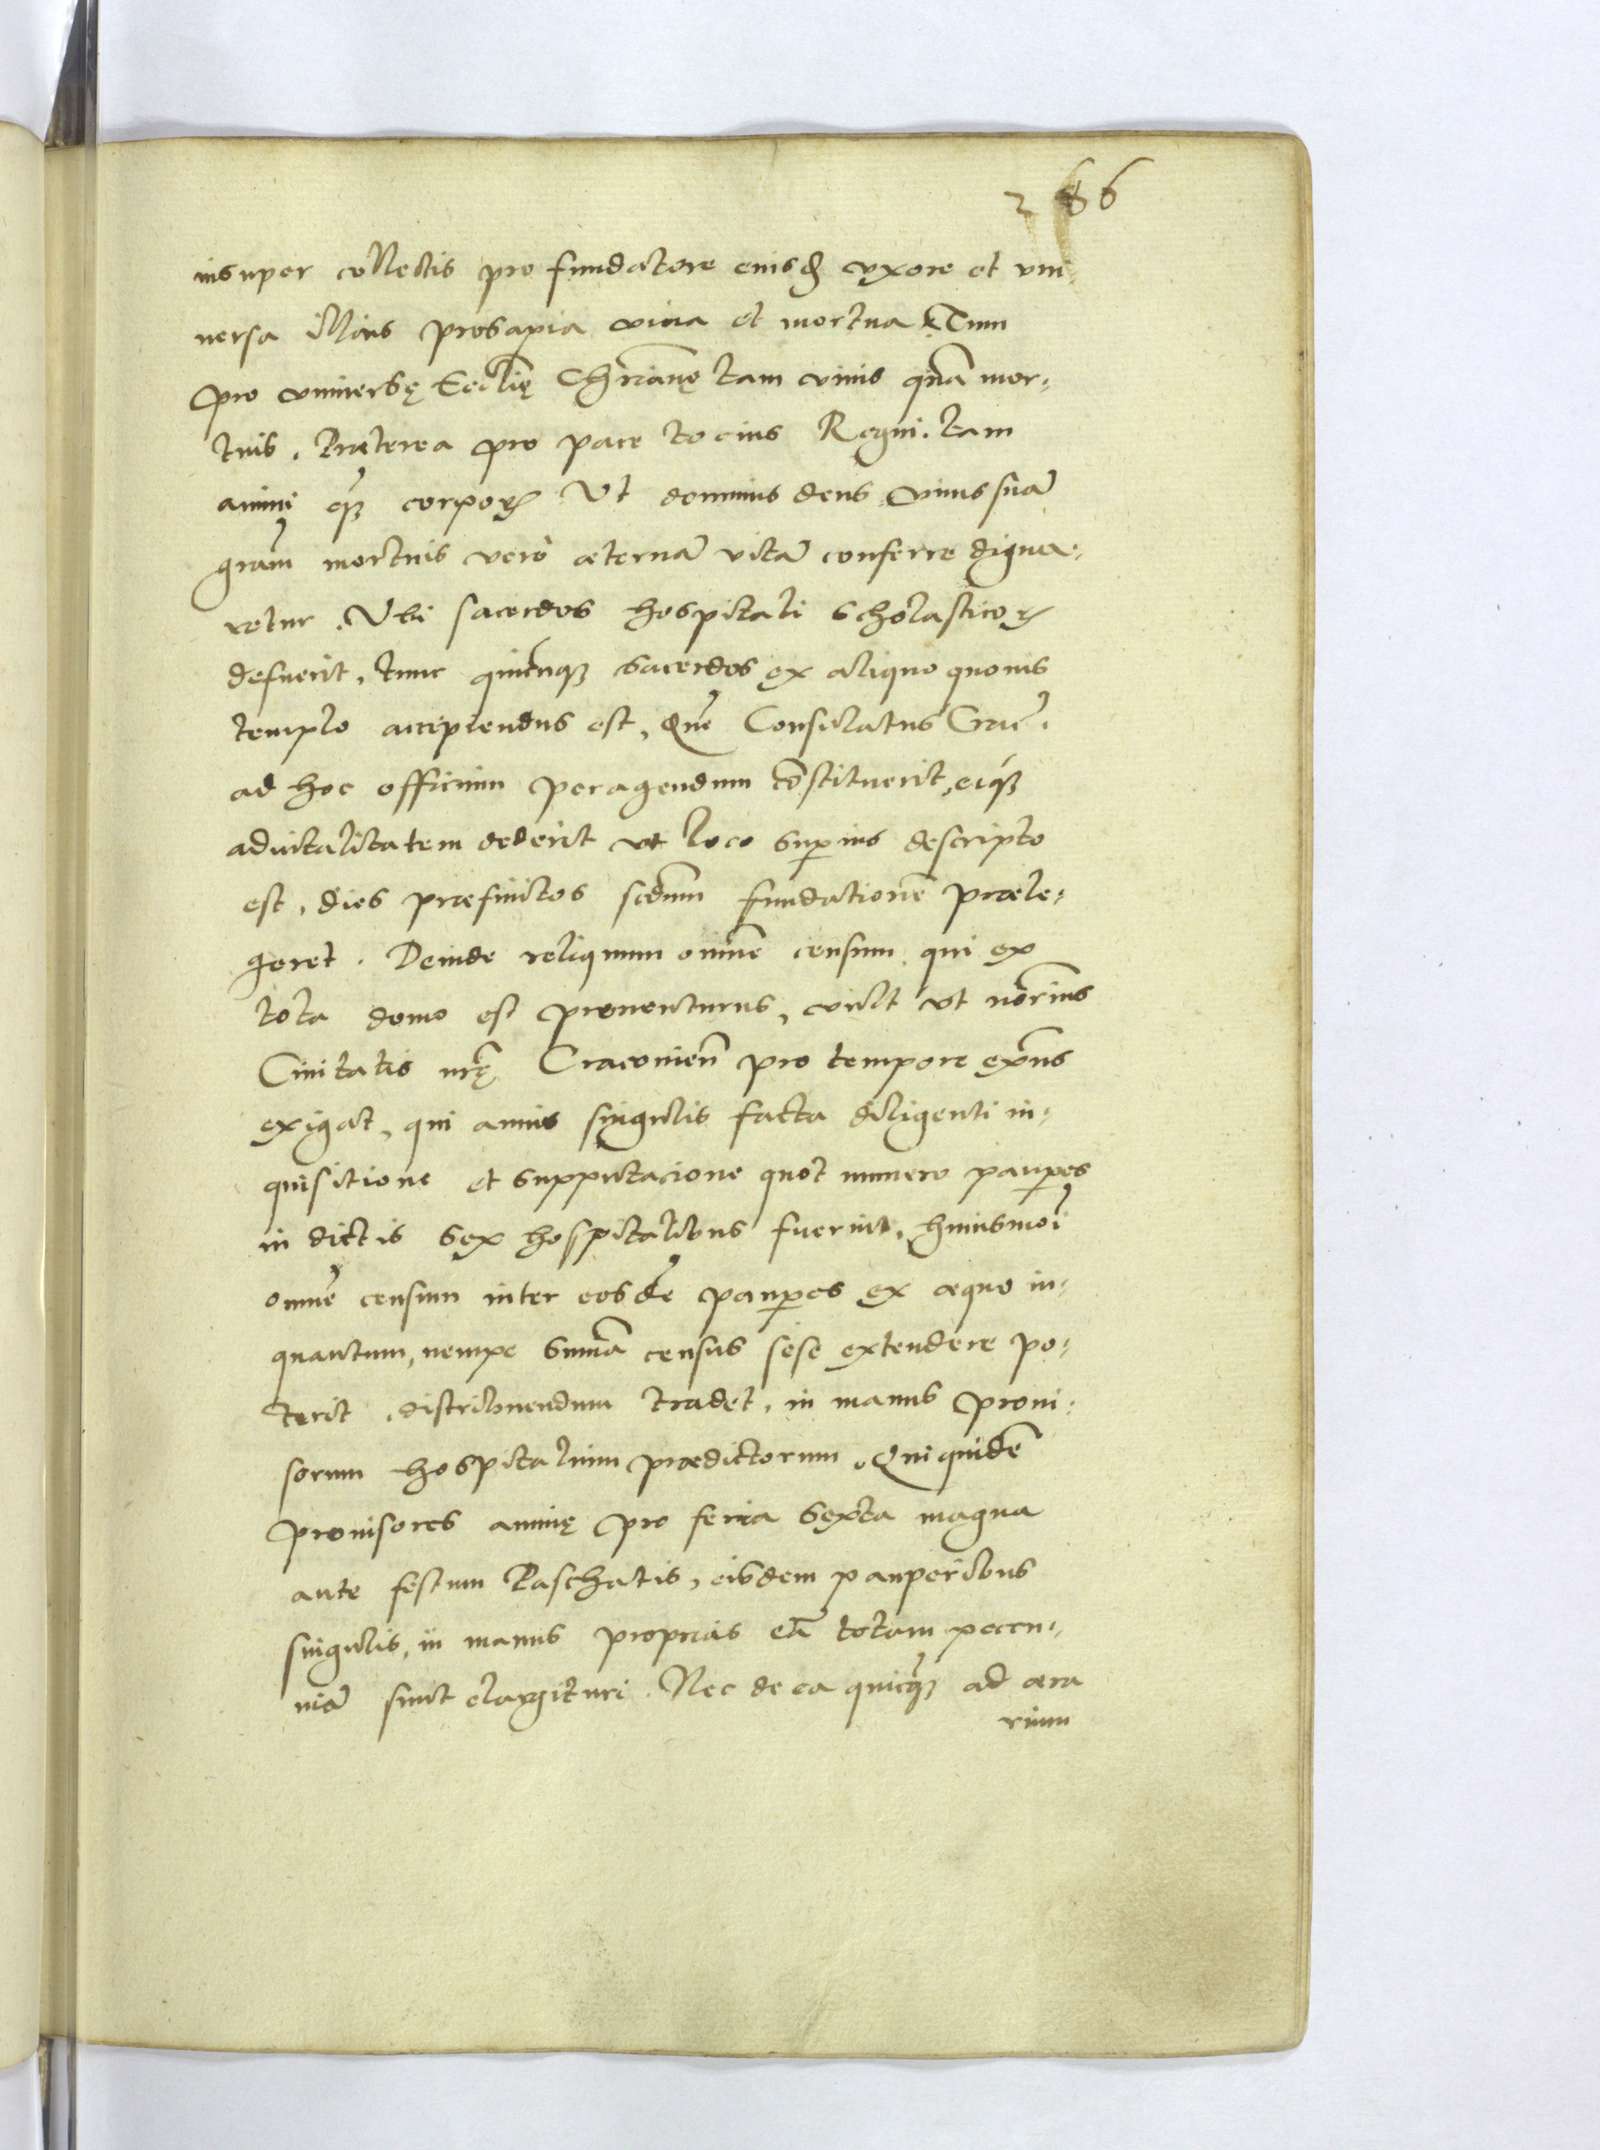 286
insuper collectis pro fundatore eiusq̃ uxore et uni
uersa illius prosapia uiua et mortua Tum
pro uniuersę Ecclię Chr̃ianę tam uiuis quã mor-
tuis. Praeterea pro pace tocius Regni. tam
animi q̃ȝ corporꝝ Vt dominus deus uiuis suã
gram̃ mortuis uerò aeternã uitã conferre digna-
retur. Vbi sacerdos hospitali scholasticoꝝ
defuerit, tunc quicunqȝ sacerdos ex aliquo quouis
templo accipiendus est, Quẽ Consulatus Crac̃.
ad hoc officium peragendum cõstituerit, eiqȝ
aduitalitatem dederit ut loco supius descripto
est, dies praefinitos scdum̃ fundationẽ praele-
geret. Deinde reliquum omnẽ censum qui ex
tota domo est prouenturus, uult ut notrius
Ciuitatis nr̃ę Cracouien̄ pro tempore exñs
exigat, qui annis singulis facta diligenti in-
quisitione et supputacione quot numero paupes
in dictis sex hospitalibus fuerint, huiusmoi
omnẽ censum inter eosdẽ paupes ex aequo in-
quantum, nempe sum̃a census sese extendere po-
terit, distribuendum tradet, in manus proui-
sorum hospitalium praedictorum. Qui quidẽ
prouisores annuę pro feria sexta magna
ante festum Paschatis, eisdem pauperibus
singulis, in manus proprias eã totam pecu-
niã sint elargituri. Nec de ea quicqȝ ad aera
rium